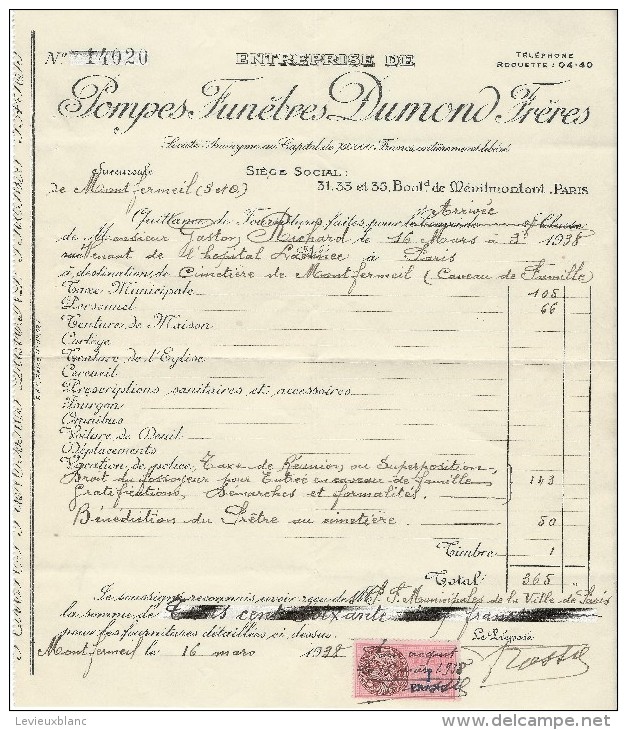 Nº 14020
ENTREPRISE DE
TÉLÉPHONE
ROQUETTE: 04-40
Pompes Funèbres Dumond Frères
Société Anonyme au Capital de Francs entièrement libéré
Succursale
de Montfermeil (S et O)
SIÈGE SOCIAL:
31, 33 et 35, Boulᵈ de Ménilmontant, PARIS
Quittance de Fournitures faites pour l'Arrivée
de Monsieur Gaston Richard le 16 Mars à 3ʰ 1938
venant de l'hôpital Laënnec à Paris
à destination de Cimetière de Montfermeil (Caveau de Famille)
Taxe Municipale 105
Personnel 66
Tenture de Maison
Cortège
Tenture de l'Eglise
Cercueil
Prescriptions sanitaires et accessoires
Fourgon
Omnibus
Voiture de Deuil
Déplacements
Vacation de police, Taxe de Réunion ou Superposition,
Droit du fossoyeur pour Entrée en caveau de famille 143
Gratifications, Démarches et formalités.
Bénédiction du Prêtre au cimetière 50
Timbre 1
Total 365
Je soussigné reconnais avoir reçu de P. F. Municipales de la Ville de Paris
la somme de Trois cent soixante cinq francs
pour les fournitures détaillées ci dessus.
Montfermeil le 16 mars 1938
Le Préposé
Levieuxblanc
www.delcampe.net